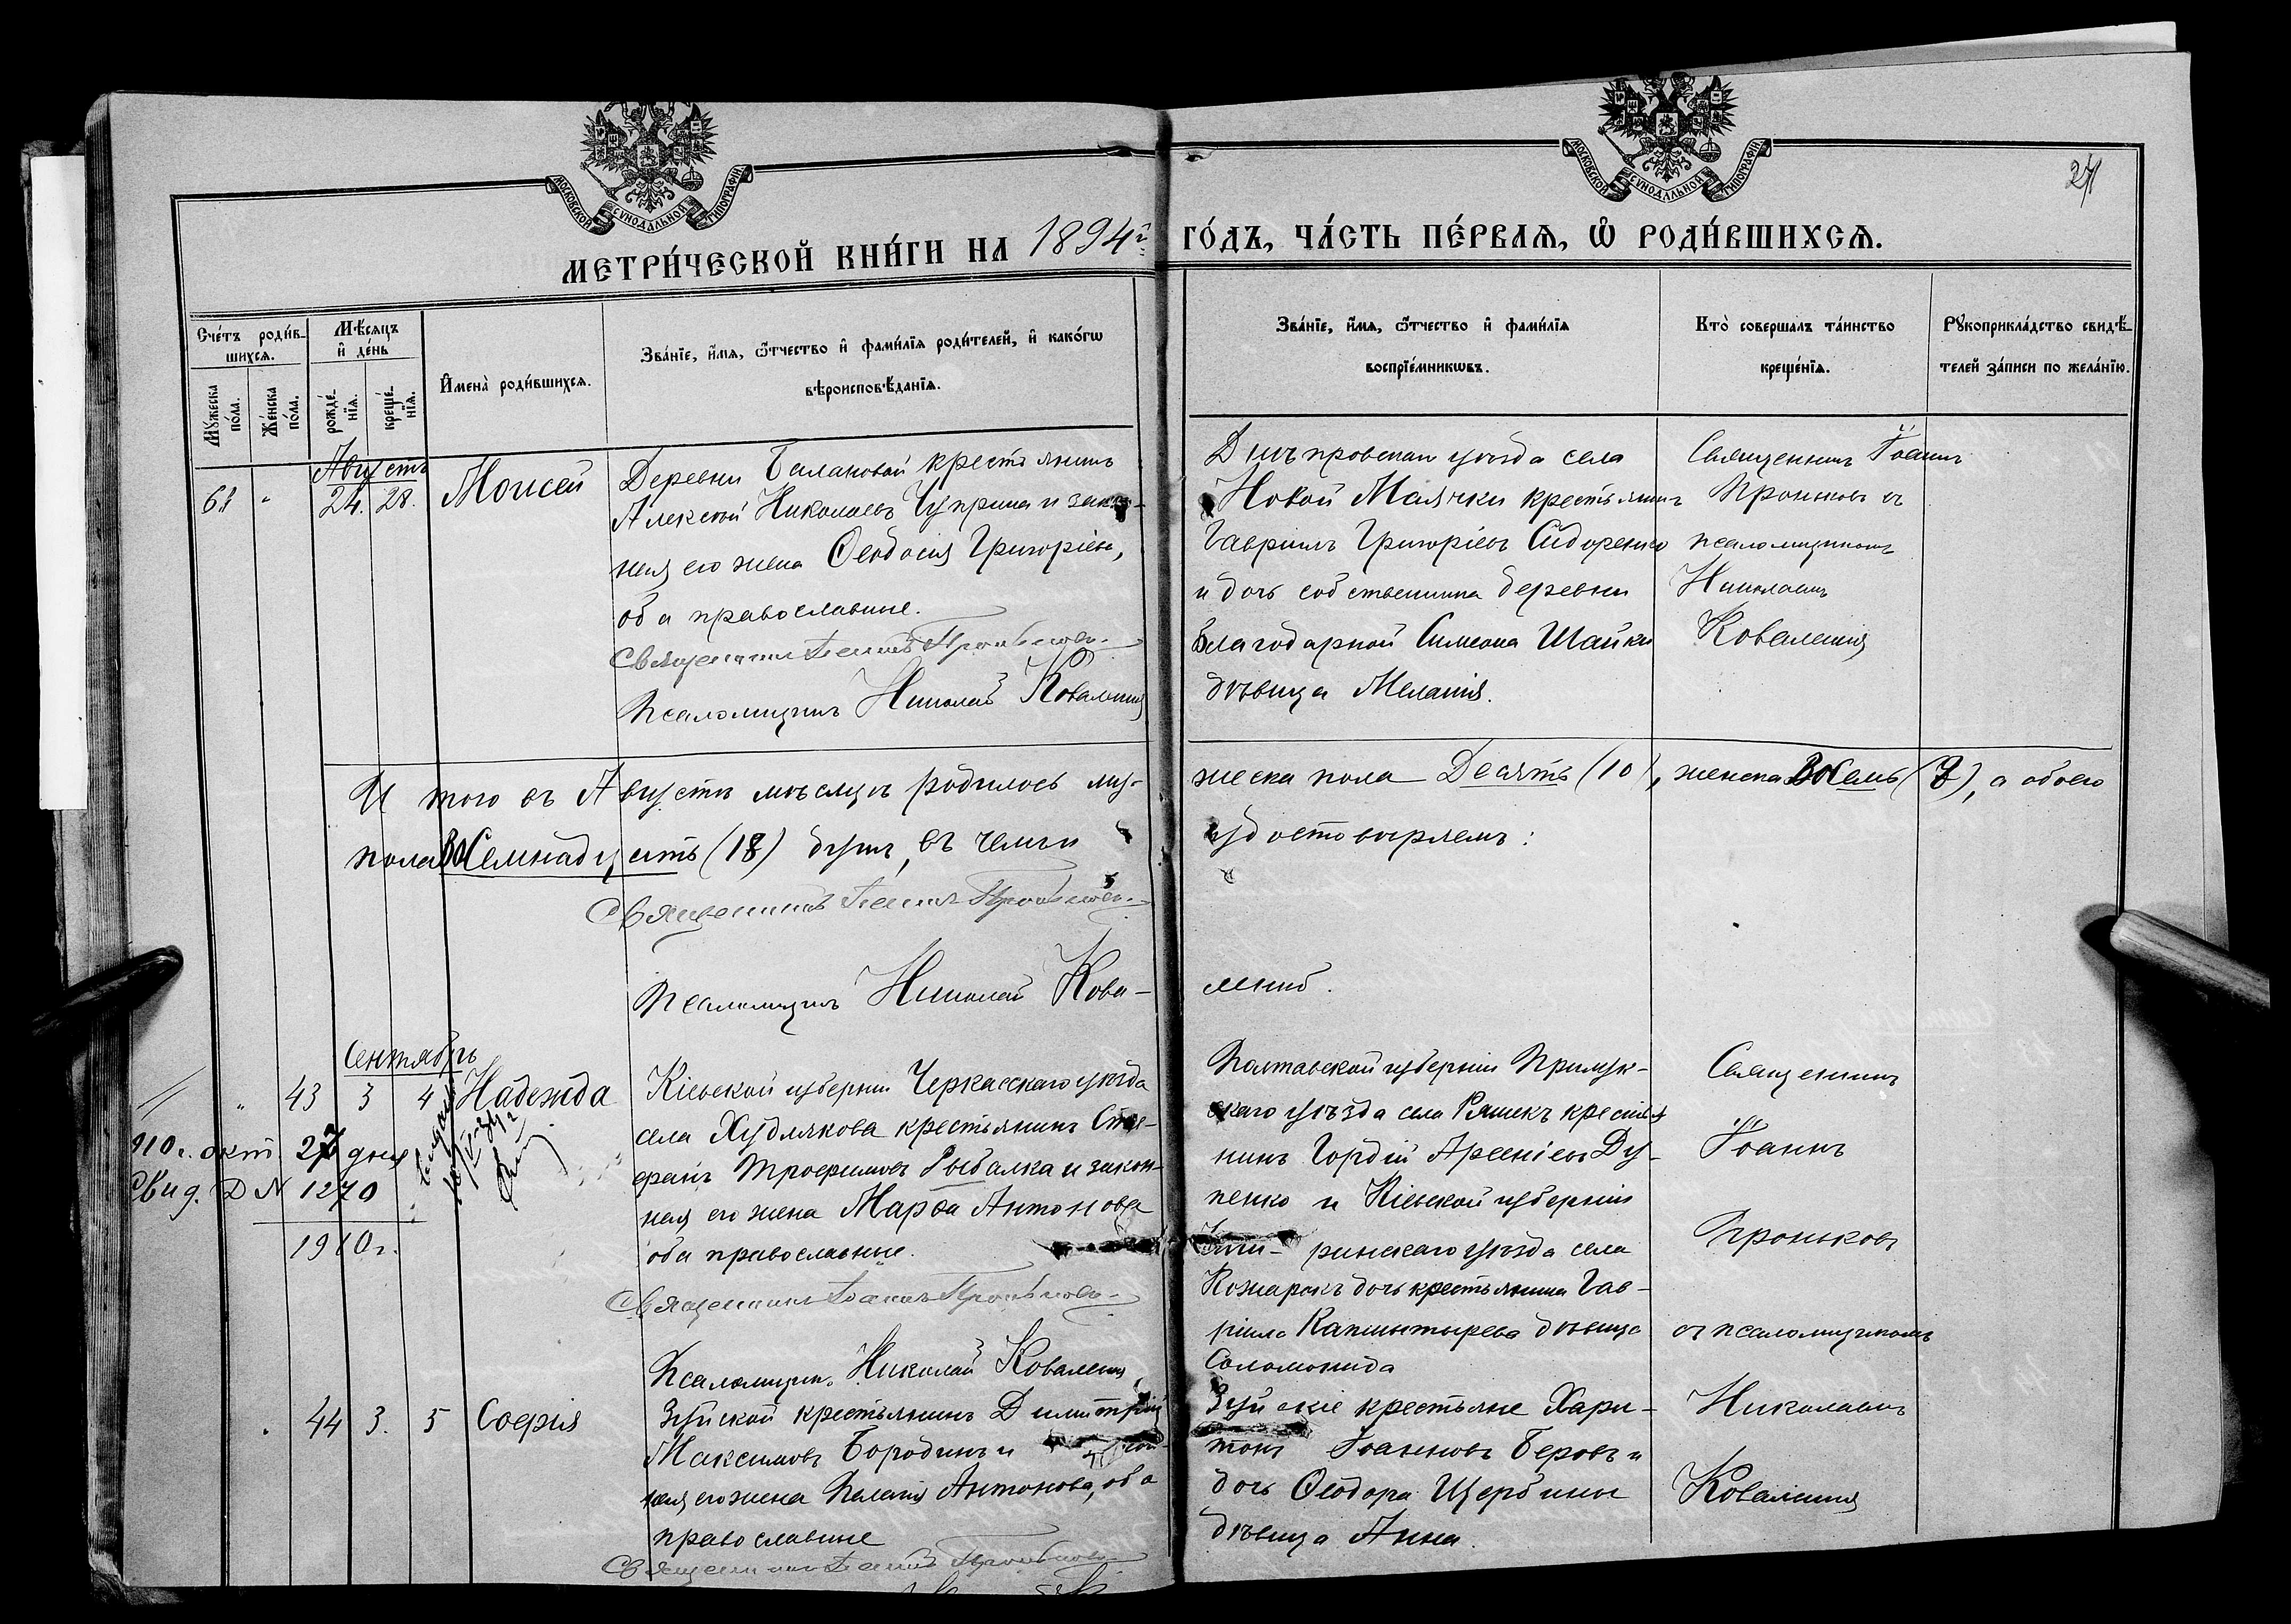 МОСКОВСКОЙ СѴНОДАЛЬНОЙ ТИПОГРАФІИ
МОСКОВСКОЙ СѴНОДАЛЬНОЙ ТИПОГРАФІИ
27
МЕТРИ́ЧЕСКОЙ КНИ́ГИ НА 1894й ГО́ДЪ, ЧА́СТЬ ПЕ́РВАѦ, Ѡ РОДИ́ВШИХСѦ.
Сче́тъ роди́в-
шихсѧ.
Мꙋжеска по́ла.
Же́нска по́ла.
Мѣ́сѧцъ
и҆ де́нь
рожде́-
нїѧ.
креще́-
нїѧ.
И҆мена̀ роди́вшихсѧ.
Зва́нїе, и҆́мѧ, ѻ҆́тчество и҆ фами́лїѧ роди́телей, и҆ како́гѡ
вѣроисповѣ́данїѧ.
Зва́нїе, и҆́мѧ, ѻ҆́тчество и҆ фами́лїѧ
воспрїе́мникѡвъ.
Кто̀ совершалъ та́инство
креще́нїѧ.
Рꙋкоприкла́дство свидѣ́-
телей за́писи по жела́нїю.
Августъ
61 " 24. 28. Моисей
Деревни Балановой крестьянинъ
Алексѣй Николаевъ Чуприна и закон-
ная его жена Ѳеодосія Григоріева,
оба православные.
Священникъ Іоаннъ Проньковъ.
Псаломщикъ Николай Коваленко
Днѣпровскаго уѣзда села
Новой Маячки крестьянинъ
Гавріилъ Григоріевъ Сидоренко
и дочь собственника деревни
Благодарной Симеона Шайки
дѣвица Меланія.
Священникъ Іоаннъ
Проньковъ съ
псаломщикомъ
Николаемъ
Коваленко
Итого въ Августѣ мѣсяцѣ родилось му-
жеска пола Десять (10), женска Восемь (8), а обоего
пола Восемнадцать (18) душъ, въ чемъ и
удостовѣряемъ:
Священникъ Іоаннъ Проньковъ.
Псаломщикъ Николай Кова-
ленко.
Сентябрь
" 43 3 4 Надежда
910 г. окт. 27 дня
Свид. № 1270
1910 г.
Кіевской губерніи Черкасскаго уѣзда
села Худлякова крестьянинъ Сте-
фанъ Трофимовъ Рыбалка и закон-
ная его жена Марѳа Антонова
оба православные.
Священникъ Іоаннъ Проньковъ.
Псаломщикъ Николай Коваленко
Полтавской губерніи Прилук-
скаго уѣзда села Ряшекъ крестья-
нинъ Гордій Арсеніевъ Ду-
пенко и Кіевской губерніи
Чиги- ринскаго уѣзда села
Кожарокъ дочь крестьянина Гав-
ріила дѣвица
Соломонида
Священникъ
Іоаннъ
Проньковъ
съ псаломщикомъ
Николаемъ
Коваленко
. 44 3. 5 Софія
Зуйской крестьянинъ Димитрій
Максимовъ Бородинъ и закон-
ная его жена Пелагія Антонова, оба
православные
Священникъ Іоаннъ Проньковъ.
Зуйскіе крестьяне Хари-
тонъ Іоанновъ Беровъ и
дочь Ѳеодора Щербины
дѣвица Анна.